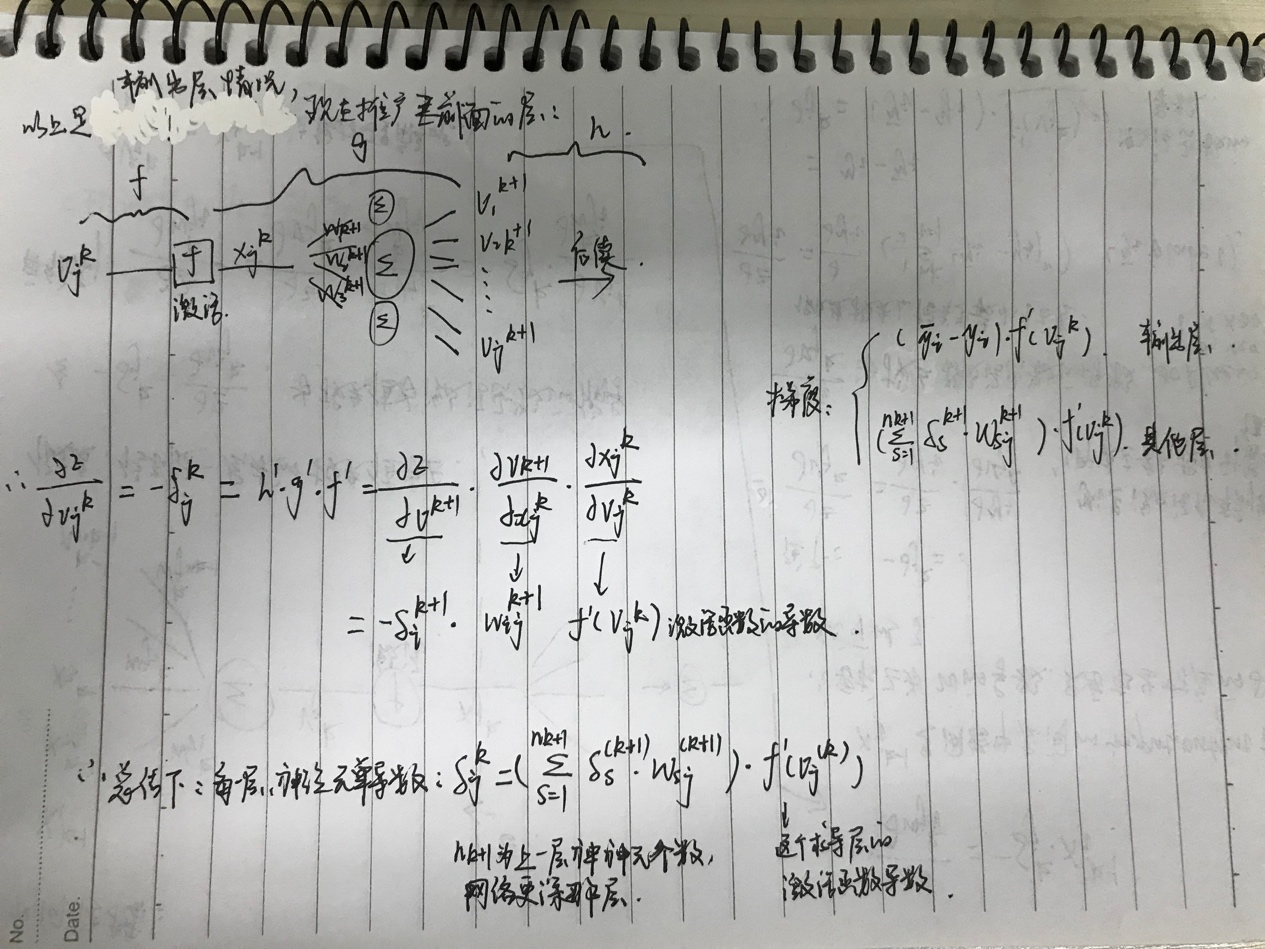 以上是输出层情况, 现在推广至前面的层:
f g h.
V_j^k f X_j^k W_1^{k+1} W_2^{k+1} W_3^{k+1} Σ Σ Σ V_1^{k+1} V_2^{k+1} ⋮ V_j^{k+1} 后续.
激活.
梯度: { (ȳ_j - y_j)·f'(V_j^k). 输出层.
(Σ_{s=1}^{n_{k+1}} δ_s^{k+1}·W_{sj}^{k+1})·f'(V_j^k). 其他层.
∴ ∂z/∂V_j^k = -δ_j^k = h'·g'·f' = ∂z/∂V^{k+1} · ∂V^{k+1}/∂x_j^k · ∂x_j^k/∂V_j^k
↓ ↓ ↓
= -δ_i^{k+1}· W_{ij}^{k+1} f'(V_j^k) 激活函数的导数.
∴ 总结下: 每一层, 神经元单导数: δ_j^k = (Σ_{s=1}^{n_{k+1}} δ_s^{(k+1)}·W_{sj}^{(k+1)})·f'(V_j^{(k)})
↓
n_{k+1}为上一层神经元个数,
网络更深那层.
这个求导层的
激活函数导数.
No.
Date.